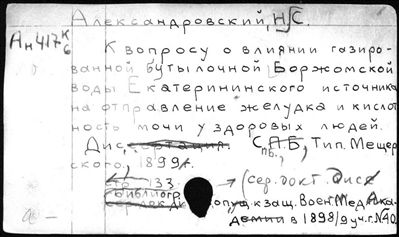 Александровский, Н.С.
Ан417 К/6
К вопросу о влиянии газиро-
ванной бутылочной Боржомской
воды Екатерининского источника
на отправление желудка и кислот
ность мочи у здоровых людей.
Диссертация. С.П.Б., Тип. Мещер
ского, 1899г.
стр. 133.
библиогр. → (сер. докт. дисс
допущ. к защ. Воен. Мед. Ака-
демии в 1898/9 уч. г. №40